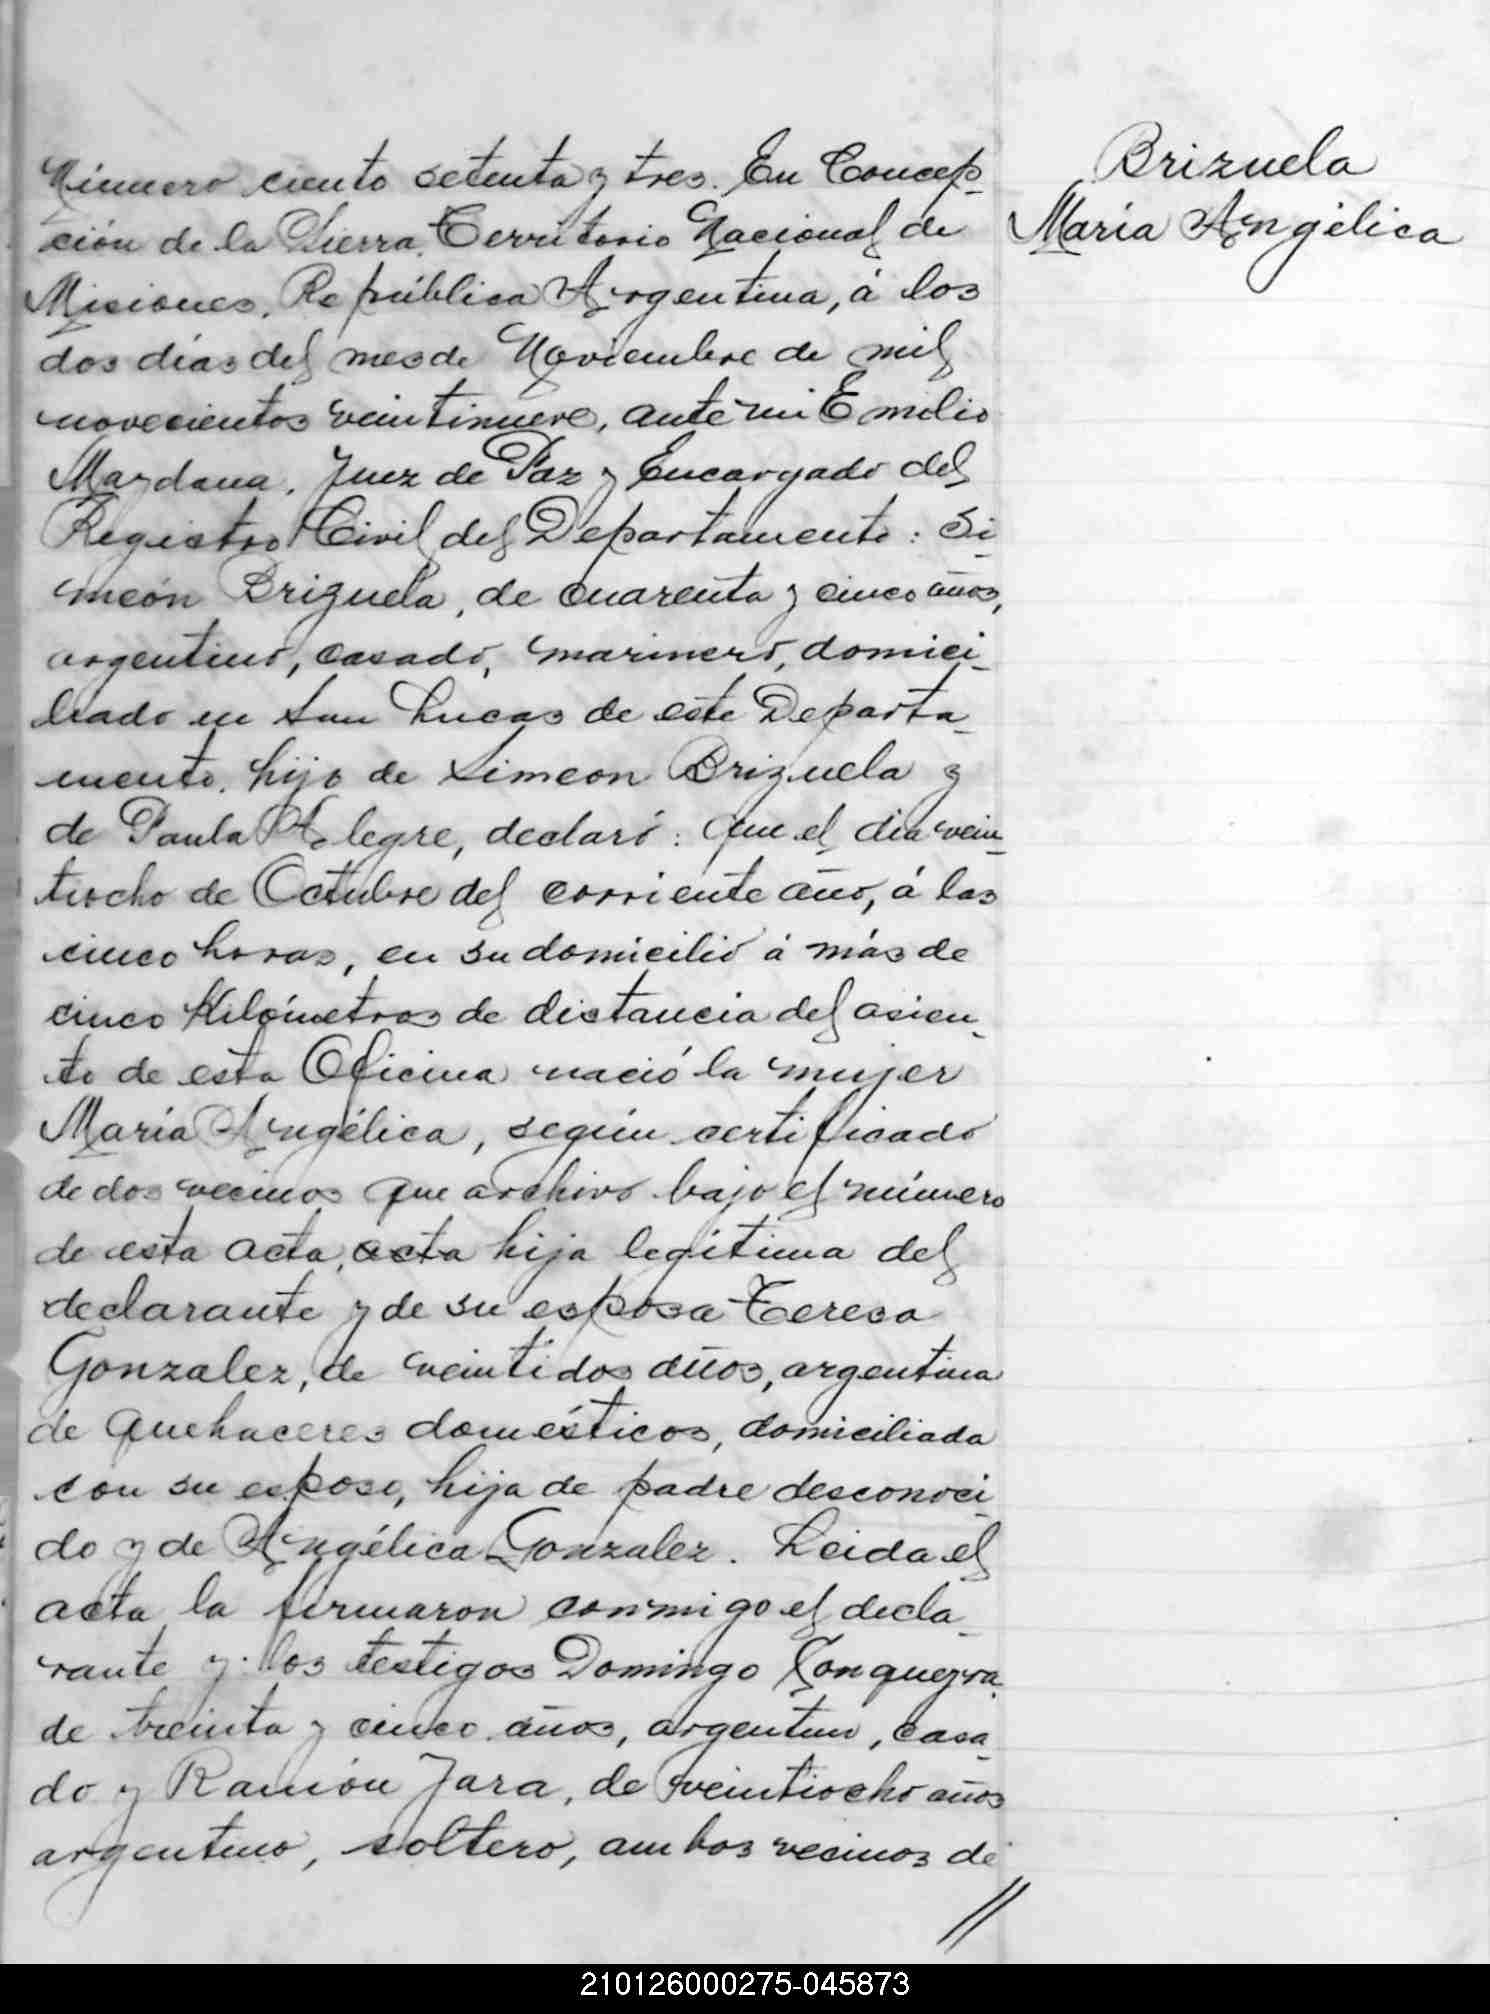 Número ciento setenta y tres. En Concep-
ción de la Sierra, Territorio Nacional de
Misiones, República Argentina, á los
dos días del mes de Noviembre de mil
novecientos veintinueve, ante mi Emilio
Maydana, Juez de Paz y Encargado del
Registro Civil del Departamento: Si-
meón Brizuela, de cuarenta y cinco años,
argentino, casado, marinero, domici-
liado en San Lucas de este Departa-
mento, hijo de Simeon Brizuela y
de Paula Alegre, declaró: que el día vein-
tiocho de Octubre del corriente año, á las
cinco horas, en su domicilio á más de
cinco Kilómetros de distancia del asien-
to de esta Oficina nació la mujer
María Angélica, según certificado
de dos vecinos que archivo bajo el número
de esta acta, acta hija legítima del
declarante y de su esposa Teresa
Gonzalez, de veintidos años, argentina
de quehaceres domésticos, domiciliada
con su esposo, hija de padre desconoci-
do y de Angélica Gonzalez. Leida el
acta la firmaron conmigo el decla-
rante y los testigos Domingo
de treinta y cinco años, argentino, casa-
do y Ramón Jara, de veintiocho años
argentino, soltero, ambos vecinos de
//
Brizuela
María Angélica
210126000275-045873